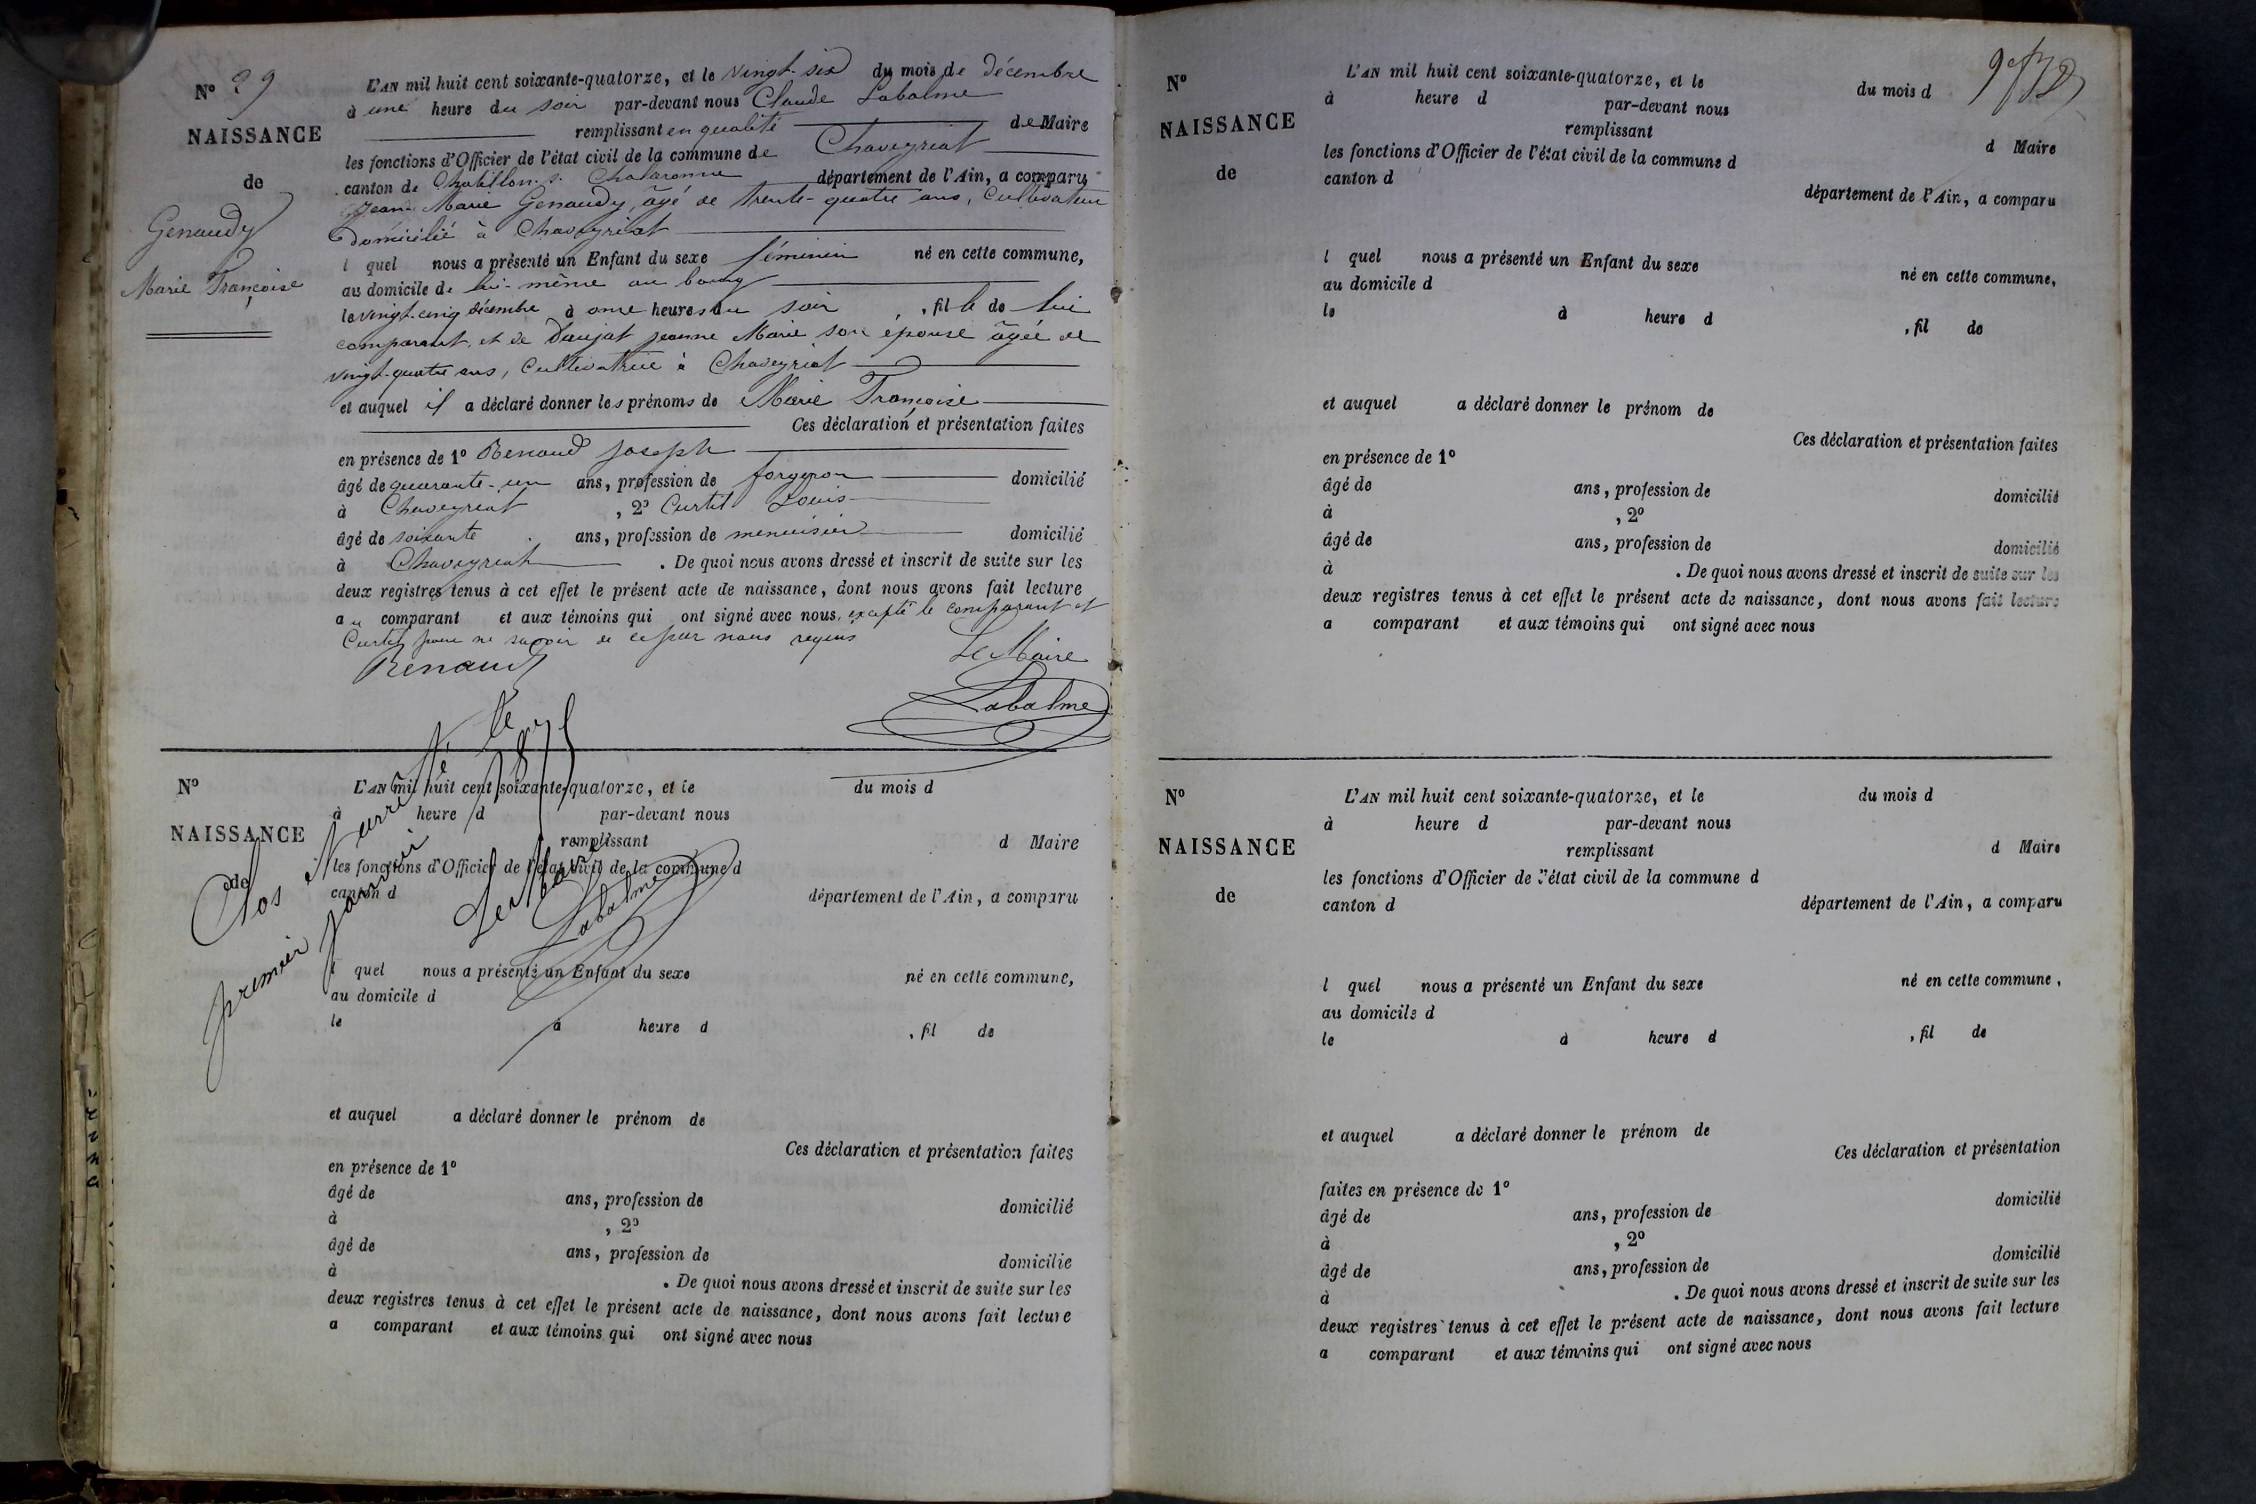 N° 29
NAISSANCE
de
Genaudy
Marie Françoise
L'AN mil huit cent soixante-quatorze, et le vingt-six du mois de décembre
à une heure du soir par-devant nous Claude Labalme
remplissant en qualité de Maire
les fonctions d'Officier de l'état civil de la commune de Chaveyriat
canton de Chatillon s. Chalaronne département de l'Ain, a comparu
Jean Marie Genaudy, âgé de trente-quatre ans, Cultivateur
Domicilié à Chaveyriat
l quel nous a présenté un Enfant du sexe féminin né en cette commune,
au domicile de lui-même au bourg
le vingt-cinq décembre à onze heures du soir , fille de lui
comparant, et de Daujat Jeanne Marie son épouse âgée de
vingt-quatre ans, Cultivatrice à Chaveyriat
et auquel il a déclaré donner les prénoms de Marie Françoise
Ces déclaration et présentation faites
en présence de 1° Renaud Joseph
âgé de quarante-un ans, profession de forgeron domicilié
à Chaveyriat , 2° Curtil Louis
âgé de soixante ans, profession de menuisier domicilié
à Chaveyriat . De quoi nous avons dressé et inscrit de suite sur les
deux registres tenus à cet effet le présent acte de naissance, dont nous avons fait lecture
au comparant et aux témoins qui ont signé avec nous, excepté le comparant et
Curtil pour ne savoir de ce par nous requis
Renaud
Le Maire
Labalme
N°
NAISSANCE
de
L'AN mil huit cent soixante-quatorze, et le du mois d
à heure d par-devant nous
remplissant d Maire
les fonctions d'Officier de l'état civil de la commune d
canton d département de l'Ain, a comparu
Clos Narrêté le
premier Janvier 1875
Le Maire
Labalme
l quel nous a présenté un Enfant du sexe né en cette commune,
au domicile d
le à heure d , fil de
et auquel a déclaré donner le prénom de
Ces déclaration et présentation faites
en présence de 1°
âgé de ans, profession de domicilié
à , 2°
âgé de ans, profession de domicilié
à . De quoi nous avons dressé et inscrit de suite sur les
deux registres tenus à cet effet le présent acte de naissance, dont nous avons fait lecture
a comparant et aux témoins qui ont signé avec nous
N°
NAISSANCE
de
L'AN mil huit cent soixante-quatorze, et le du mois d
à heure d par-devant nous
remplissant d Maire
les fonctions d'Officier de l'état civil de la commune d
canton d département de l'Ain, a comparu
l quel nous a présenté un Enfant du sexe né en cette commune,
au domicile d
le à heure d , fil de
et auquel a déclaré donner le prénom de
Ces déclaration et présentation faites
en présence de 1°
âgé de ans, profession de domicilié
à , 2°
âgé de ans, profession de domicilié
à . De quoi nous avons dressé et inscrit de suite sur les
deux registres tenus à cet effet le présent acte de naissance, dont nous avons fait lecture
a comparant et aux témoins qui ont signé avec nous
N°
NAISSANCE
de
L'AN mil huit cent soixante-quatorze, et le du mois d
à heure d par-devant nous
remplissant d Maire
les fonctions d'Officier de l'état civil de la commune d
canton d département de l'Ain, a comparu
l quel nous a présenté un Enfant du sexe né en cette commune,
au domicile d
le à heure d , fil de
et auquel a déclaré donner le prénom de
Ces déclaration et présentation
faites en présence de 1° domicilié
âgé de ans, profession de
à , 2°
âgé de ans, profession de domicilié
à . De quoi nous avons dressé et inscrit de suite sur les
deux registres tenus à cet effet le présent acte de naissance, dont nous avons fait lecture
a comparant et aux témoins qui ont signé avec nous